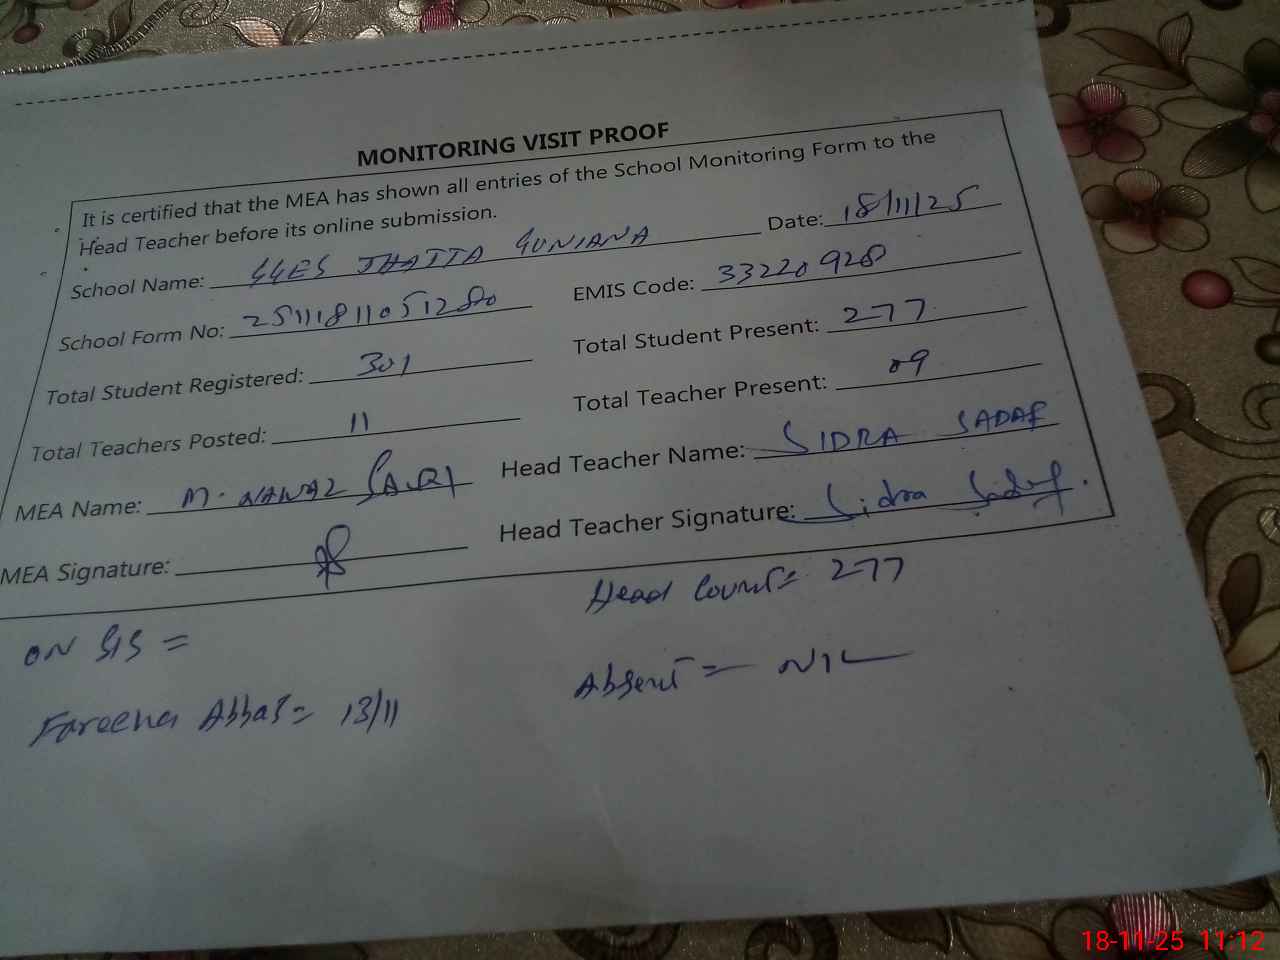 MONITORING VISIT PROOF
It is certified that the MEA has shown all entries of the School Monitoring Form to the
Head Teacher before its online submission.
School Name: GGES JHATTA GUNIANA Date: 18/11/25
School Form No: 25111811051280 EMIS Code: 33220928
Total Student Registered: 301 Total Student Present: 277
Total Teachers Posted: 11 Total Teacher Present: 09
MEA Name: M. NAWAZ Head Teacher Name: SIDRA SADAF
MEA Signature: Head Teacher Signature: Sidra Sadaf.
Head Count = 277
ON SIS =
Absent = NIL
Fareeha Abbas = 13/11
18-11-25 11:12